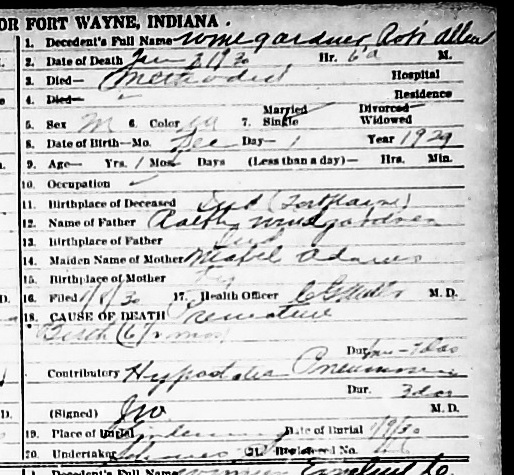 OR FORT WAYNE, INDIANA.
1. Decedent's Full Name Winegardner Rob't Allen
2. Date of Death Jan 8/30 Hr. 6 a M.
3. Died— Methodist Hospital
4. Died— Residence
5. Sex M 6. Color W 7. Married Single Divorced Widowed
8. Date of Birth—Mo. Dec Day— 1 Year 1929
9. Age— Yrs. 1 Mos. Days (Less than a day)— Hrs. Min.
10. Occupation
11. Birthplace of Deceased Ind (Fort Wayne)
12. Name of Father Ralph Winegardner
13. Birthplace of Father Ind
14. Maiden Name of Mother Mabel Adams
15. Birthplace of Mother
16. Filed 1/8/30 17. Health Officer M. D.
18. CAUSE OF DEATH Premature
Birth (6½ mos)
Dur.
Contributory Hypostatic Pneumonia
Dur. 3 da
D. (Signed) M. D.
19. Place of Burial Date of Burial 1/9/30
20. Undertaker 21. Registered No.
1. Decedent's Full Name